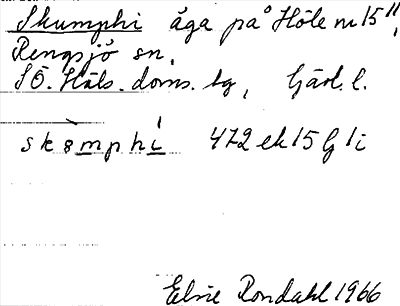 Skumphi äga på Höle nr 15",
Rengsjö sn,
SÖ. Häls. doms. tg, Gävl. l.
skəmphi 472 ek 15 G 1 i
Elsie Rondahl 1966